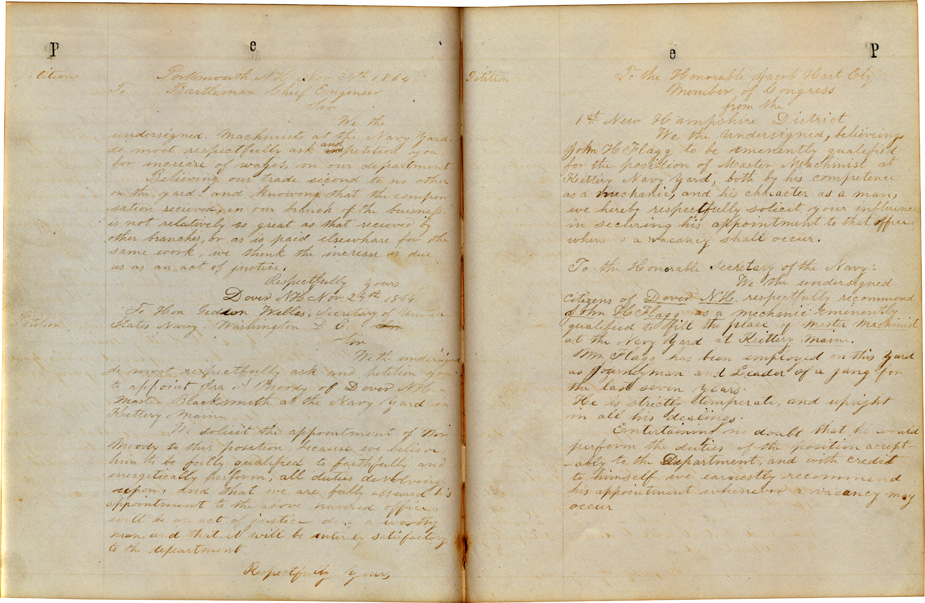 P e
Petition
Portsmouth N.H. Nov 29th 1864
To Bartleman Chief Engineer
Sir
We the
undersigned. Machinists at the Navy Yard
do most respectfully ask and petition you
for increse of wages, in our department
Believing our trade second to no other
in the yard and knowing that the compen
sation recieved, in our branch of the buisness.
is not relatively so great as that recieved by
other branches, or as is paid elsewhare for the
same work, we think the increase is due
us as an act of justice.
Respectfully yours
Dover NH Nov 29th 1864
Petition
To Hon Gedion Welles, Secretary of
States Navy Washington D C
Sir
We the undersigned
do most respectfully ask and petition you
to appoint Ira A Moody of Dover NH
Master Blacksmith at the Navy Yard in
Kittery Maine
We solicit the appointment of
Moody to this position because we believe
him to be fully qualified to faithfully and
energetically perform, all duties devolving
upon, and that we are fully assured his
appointment to the above named office,
will be an act of justice due a worthy
man, and that it will be entirely satisfactory
to the department
Respectfully Yours,
e P
Petition
To the Honorable Jacob Hart Ely
Member of Congress
from the
1st New Hampshire District
We the undersigned, believing
John H Flagg to be emenently qualified
for the possition of Master Machinist at
Kittery Navy Yard, both by his competence
as a mechanic and his character as a man,
we hereby respectfully solicit your influence
in securing his appointment to that office
when a vacancy shall occur.
To the Honorable Secretary of the Navy:
We the undersigned
Citizens of Dover N.H. respectfully recommend
John H Flagg as a mechanic Emenently
qualified to fill the place of Master Machinist
at the Navy Yard at Kittery Maine.
Mr Flagg has been employed on this Yard
as Journeyman and Leader of a gang for
the last seven years.
He is strictly temperate, and upright
in all his dealings.
Entertaining no doubt that he would
perform the duties of the position accept
ably to the Department, and with credit
to himself we earnestly recommend
his appointment a vacancy may
occur